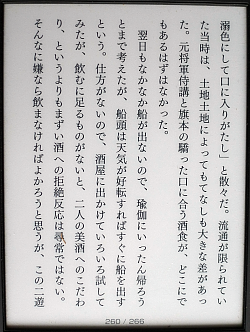 溺色にして口に入りがたし」と散々だ。流通が限られてい
た当時は、土地土地によってもてなしも大きな差があっ
た。元将軍侍講と旗本の驕った口に合う酒食が、どこにで
もあるはずはなかった。
翌日もなかなか船が出ないので、瑜伽にいったん帰ろう
とまで考えたが、船頭は天気が好転すればすぐに船を出す
という。仕方がないので、酒屋に出かけていろいろ試して
みたが、飲むに足るものがないと、二人の美酒へのこだわ
り、というよりもまずい酒への拒絶反応は尋常ではない。
そんなに嫌なら飲まなければよかろうと思うが、この二遊
260 / 266